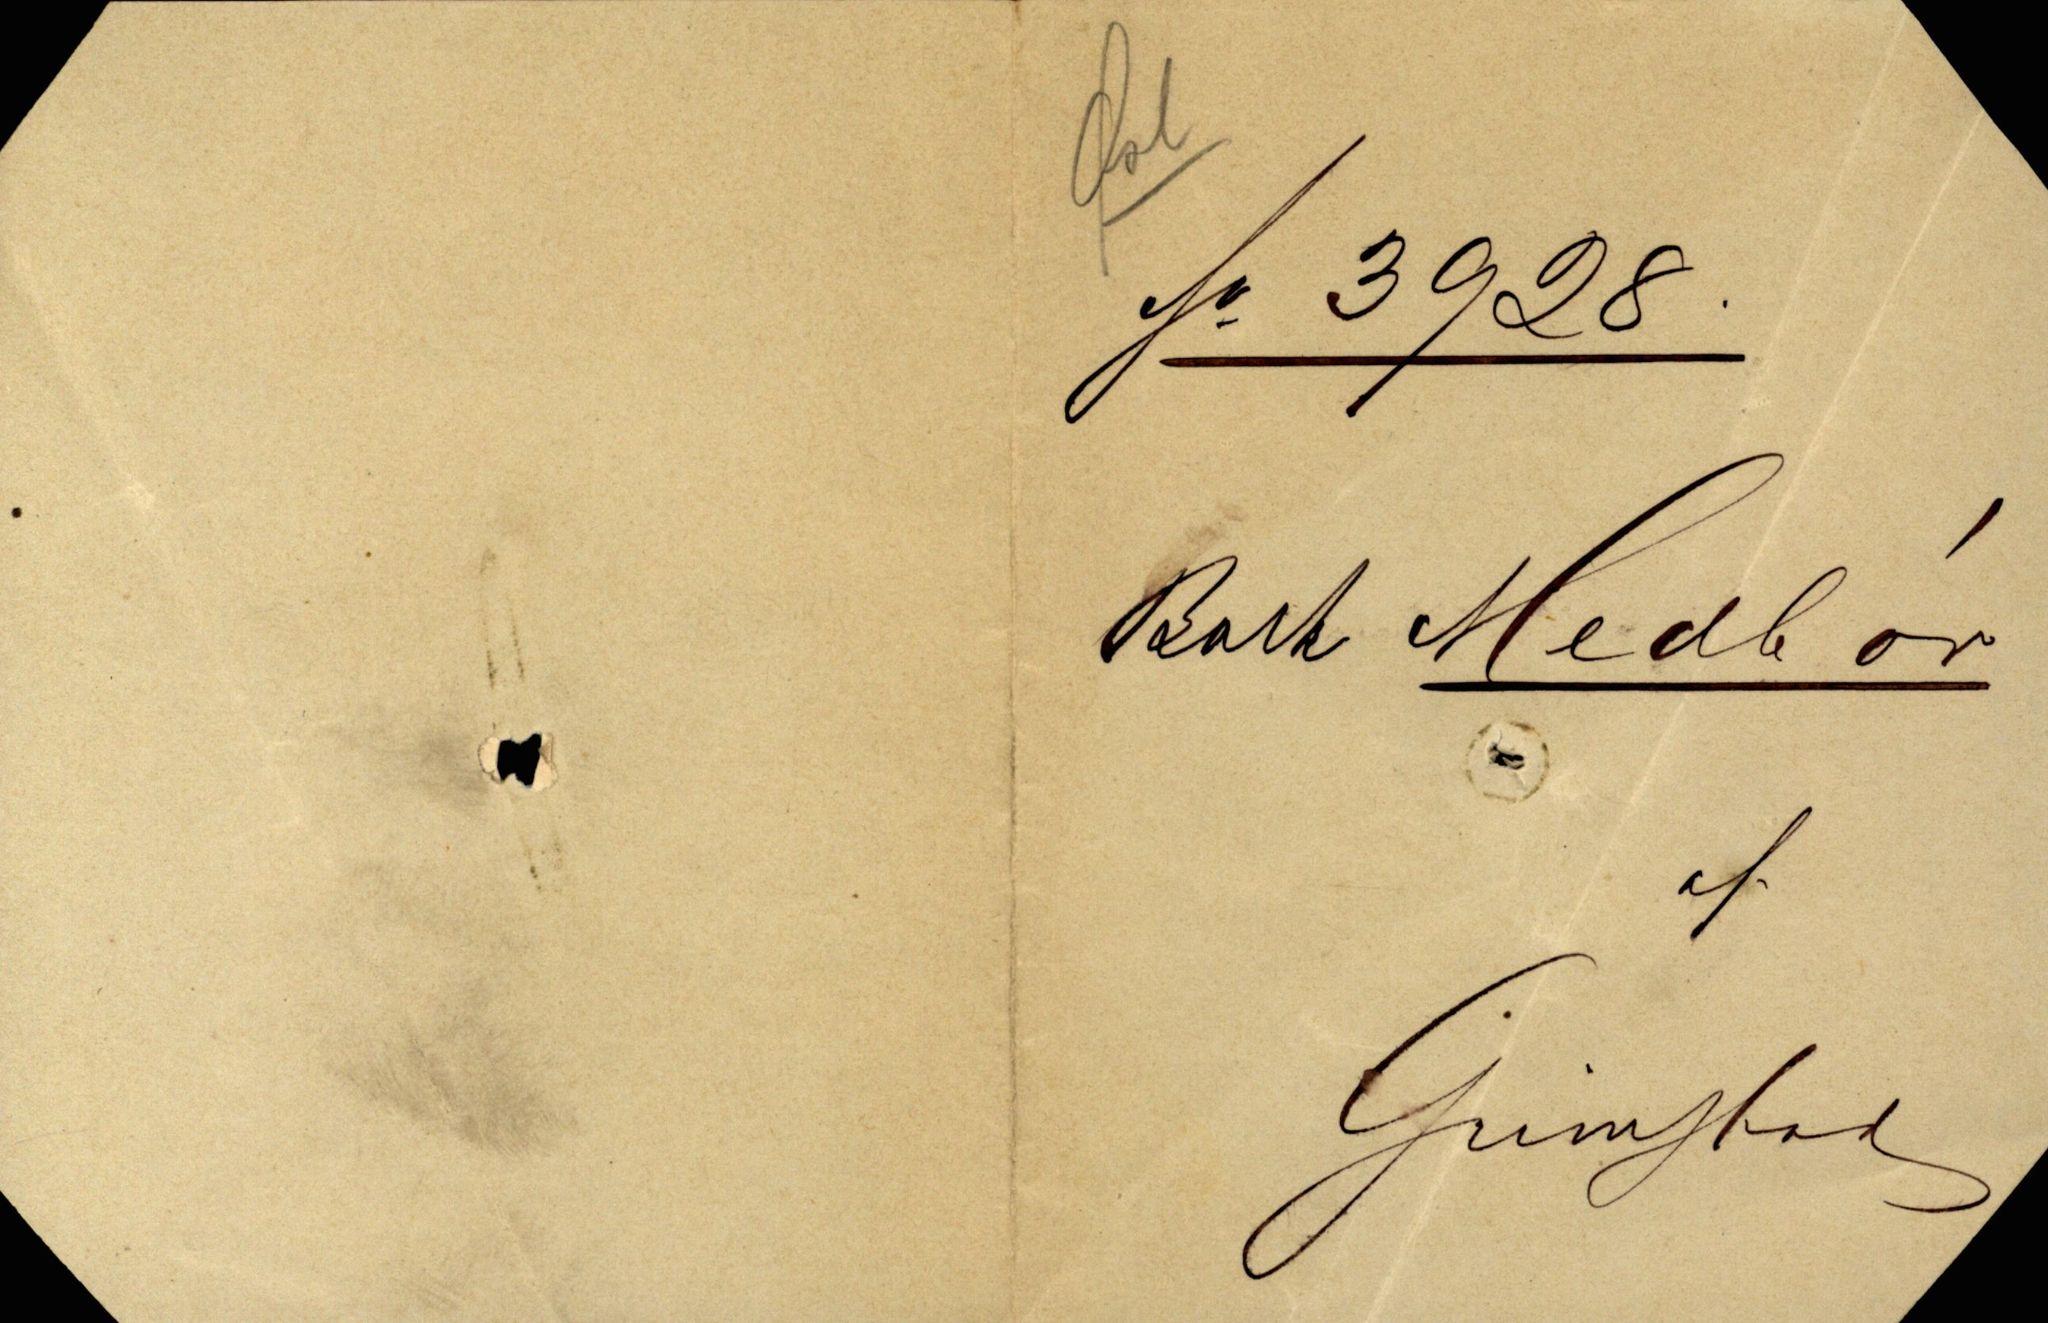 No 3928.
Bark Medbör
af
Grimstad